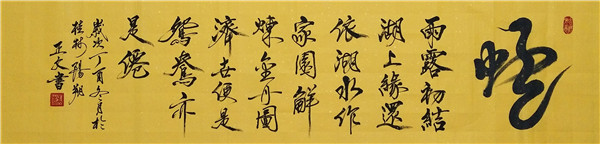 雨露初結
湖上緣還
依湖水作
家園鮮
煉金丹圖
濟世便是
鴛鴦亦
是僊
歲次丁酉冬月於
桂林陽朔
正文書